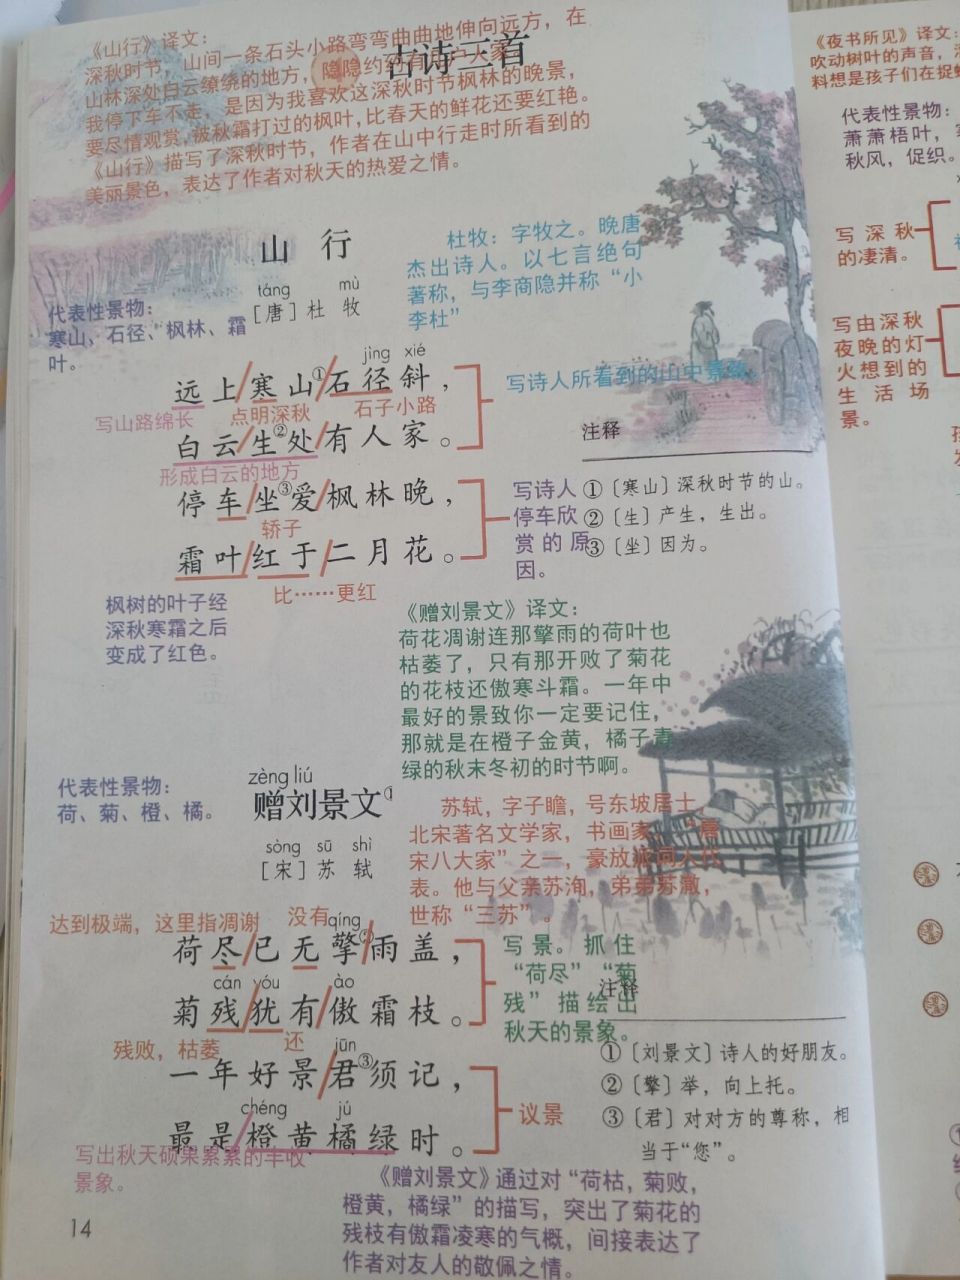 《山行》译文：
古诗三首
深秋时节，山间一条石头小路弯弯曲曲地伸向远方，在
山林深处白云缭绕的地方，隐隐约约有
我停下车不走，是因为我喜欢这深秋时节枫林的晚景，
要尽情观赏，被秋霜打过的枫叶，比春天的鲜花还要红艳。
《山行》描写了深秋时节，作者在山中行走时所看到的
美丽景色，表达了作者对秋天的热爱之情。
山 行
táng mù
［唐］杜 牧
杜牧：字牧之。晚唐
杰出诗人。以七言绝句
著称，与李商隐并称“小
李杜”
代表性景物：
寒山、石径、枫林、霜
叶。
jìng xié
远上/寒山①/石径斜，
写山路绵长
点明深秋
石子小路
白云/生②处/有人家。
形成白云的地方
写诗人所看到的山中景
停车/坐③爱/枫林晚，
轿子
霜叶/红于/二月花。
比……更红
枫树的叶子经
深秋寒霜之后
变成了红色。
写诗人
停车欣
赏的原
因。
注释
①〔寒山〕深秋时节的山。
②〔生〕产生，生出。
③〔坐〕因为。
《赠刘景文》译文：
荷花凋谢连那擎雨的荷叶也
枯萎了，只有那开败了菊花
的花枝还傲寒斗霜。一年中
最好的景致你一定要记住，
那就是在橙子金黄，橘子青
绿的秋末冬初的时节啊。
代表性景物：
荷、菊、橙、橘。
zèng liú
赠刘景文①
sòng sū shì
［宋］苏 轼
苏轼，字子瞻，号东坡居士，
北宋著名文学家，书画家，“唐
宋八大家”之一，豪放派词人代
表。他与父亲苏洵，弟弟苏澈，
世称“三苏”。
达到极端，这里指凋谢
没有
qíng
荷尽/已无擎②/雨盖，
cán yóu ào
菊残/犹有/傲霜枝。
残败，枯萎
还
jūn
一年好景/君③须记，
chéng jú
最是/橙黄橘绿时。
写出秋天硕果累累的丰收
景象。
写景。抓住
“荷尽”“菊
残”描绘出
秋天的景象。
议景
注释
①〔刘景文〕诗人的好朋友。
②〔擎〕举，向上托。
③〔君〕对对方的尊称，相
当于“您”。
《赠刘景文》通过对“荷枯，菊败，
橙黄，橘绿”的描写，突出了菊花的
残枝有傲霜凌寒的气概，间接表达了
作者对友人的敬佩之情。
14
《夜书所见》译文：
吹动树叶的声音，
料想是孩子们在捉
代表性景物：
萧萧梧叶，
秋风，促织。
写深秋
的凄清。
写由深秋
夜晚的灯
火想到的
生活场
景。